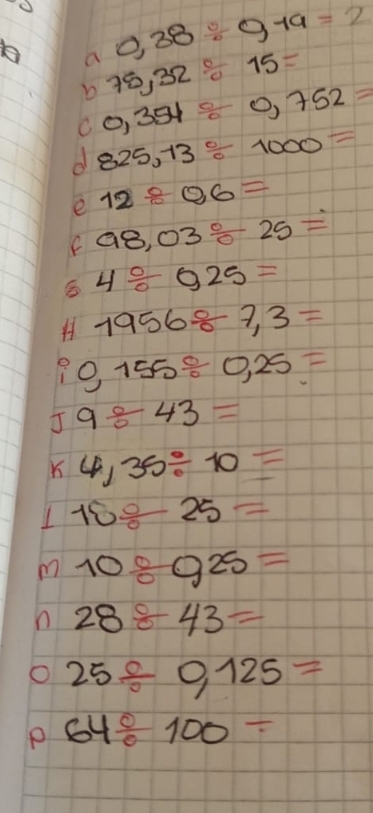 a 0,38 ÷ 0,19 = 2
b 78,32 ÷ 15 =
c 0,351 ÷ 0,752 =
d 825,13 ÷ 1000 =
e 12 ÷ 0,6 =
f 98,03 ÷ 25 =
g 4 ÷ 0,25 =
H 1956 ÷ 7,3 =
i 0,155 ÷ 0,25 =
J 9 ÷ 43 =
K 4,35 ÷ 10 =
l 18 ÷ 25 =
m 10 ÷ 0,25 =
n 28 ÷ 43 =
o 25 ÷ 0,125 =
p 64 ÷ 100 =